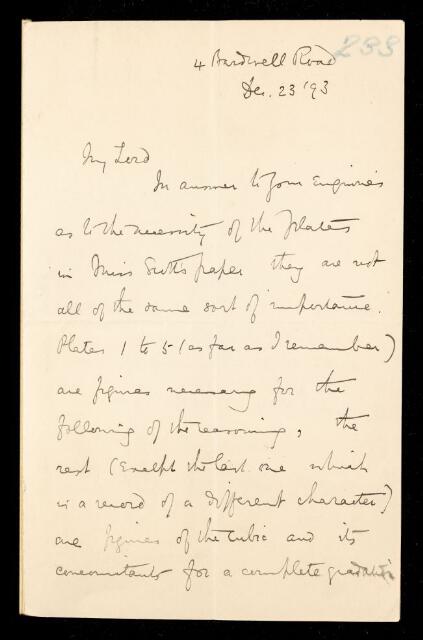 233
4 Bardwell Road
Dec. 23 '93
My Lord
In answer to your enquiries
as to the necessity of the Plates
in Miss Scott's paper they are not
all of the same sort of importance.
Plates 1 to 5 (as far as I remember)
are figures necessary for the
following of the reasoning, the
rest (except the last one which
is a record of a different character)
are figures of the cubic and its
concomitants for a complete gradation